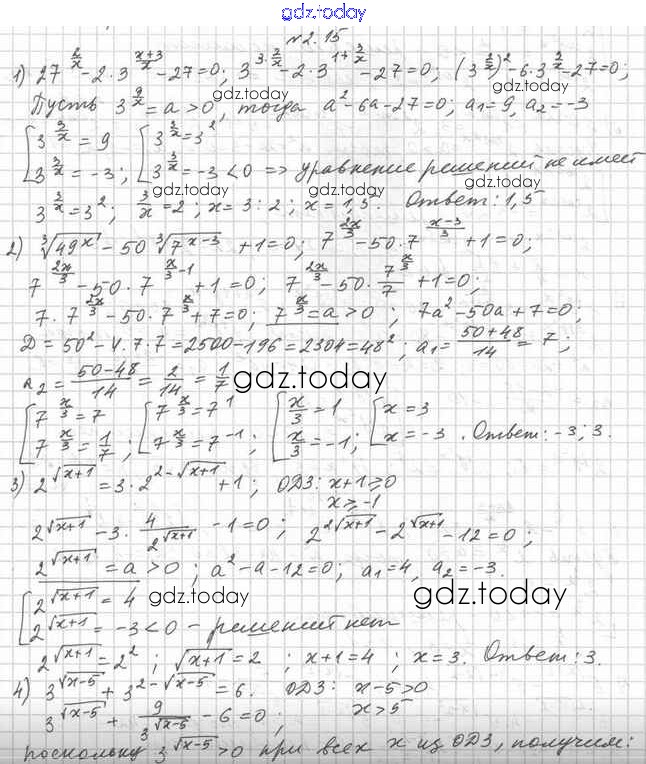 gdz.today
№2.15
1) 27^{2/x} - 2·3^{(x+3)/x} - 27 = 0; 3^{3·2/x} - 2·3^{1+3/x} - 27 = 0; (3^{3/x})² - 6·3^{3/x} - 27 = 0;
gdz.today gdz.today
Пусть 3^{3/x} = a > 0, тогда a² - 6a - 27 = 0; a₁ = 9, a₂ = -3
[3^{3/x} = 9 [3^{3/x} = 3²
3^{3/x} = -3; 3^{3/x} = -3 < 0 => уравнение решений не имеет
gdz.today gdz.today gdz.today
3^{3/x} = 3²; 3/x = 2; x = 3 : 2; x = 1,5. Ответ: 1,5
2) ∛(49^x) - 50 ∛(7^{x-3}) + 1 = 0; 7^{2x/3} - 50·7^{(x-3)/3} + 1 = 0;
gdz.today
7^{2x/3} - 50·7^{x/3-1} + 1 = 0; 7^{2x/3} - 50·7^{x/3}/7 + 1 = 0;
7·7^{2x/3} - 50·7^{x/3} + 7 = 0; 7^{x/3} = a > 0; 7a² - 50a + 7 = 0;
D = 50² - 4·7·7 = 2500 - 196 = 2304 = 48²; a₁ = (50+48)/14 = 7;
a₂ = (50-48)/14 = 2/14 = 1/7
gdz.today
[7^{x/3} = 7 [7^{x/3} = 7¹ [x/3 = 1 [x = 3
7^{x/3} = 1/7; 7^{x/3} = 7^{-1}; x/3 = -1; x = -3. Ответ: -3; 3.
3) 2^{√(x+1)} = 3·2^{2-√(x+1)} + 1; ОДЗ: x+1 ≥ 0
x ≥ -1
2^{√(x+1)} - 3·4/2^{√(x+1)} - 1 = 0; 2^{2√(x+1)} - 2^{√(x+1)} - 12 = 0;
2^{√(x+1)} = a > 0; a² - a - 12 = 0; a₁ = 4, a₂ = -3.
[2^{√(x+1)} = 4
gdz.today gdz.today
2^{√(x+1)} = -3 < 0 - решений нет
2^{√(x+1)} = 2²; √(x+1) = 2; x+1 = 4; x = 3. Ответ: 3.
4) 3^{√(x-5)} + 3^{2-√(x-5)} = 6. ОДЗ: x-5 > 0
x > 5
3^{√(x-5)} + 9/3^{√(x-5)} - 6 = 0;
gdz.today gdz.today
поскольку 3^{√(x-5)} > 0 при всех x из ОДЗ, получим: